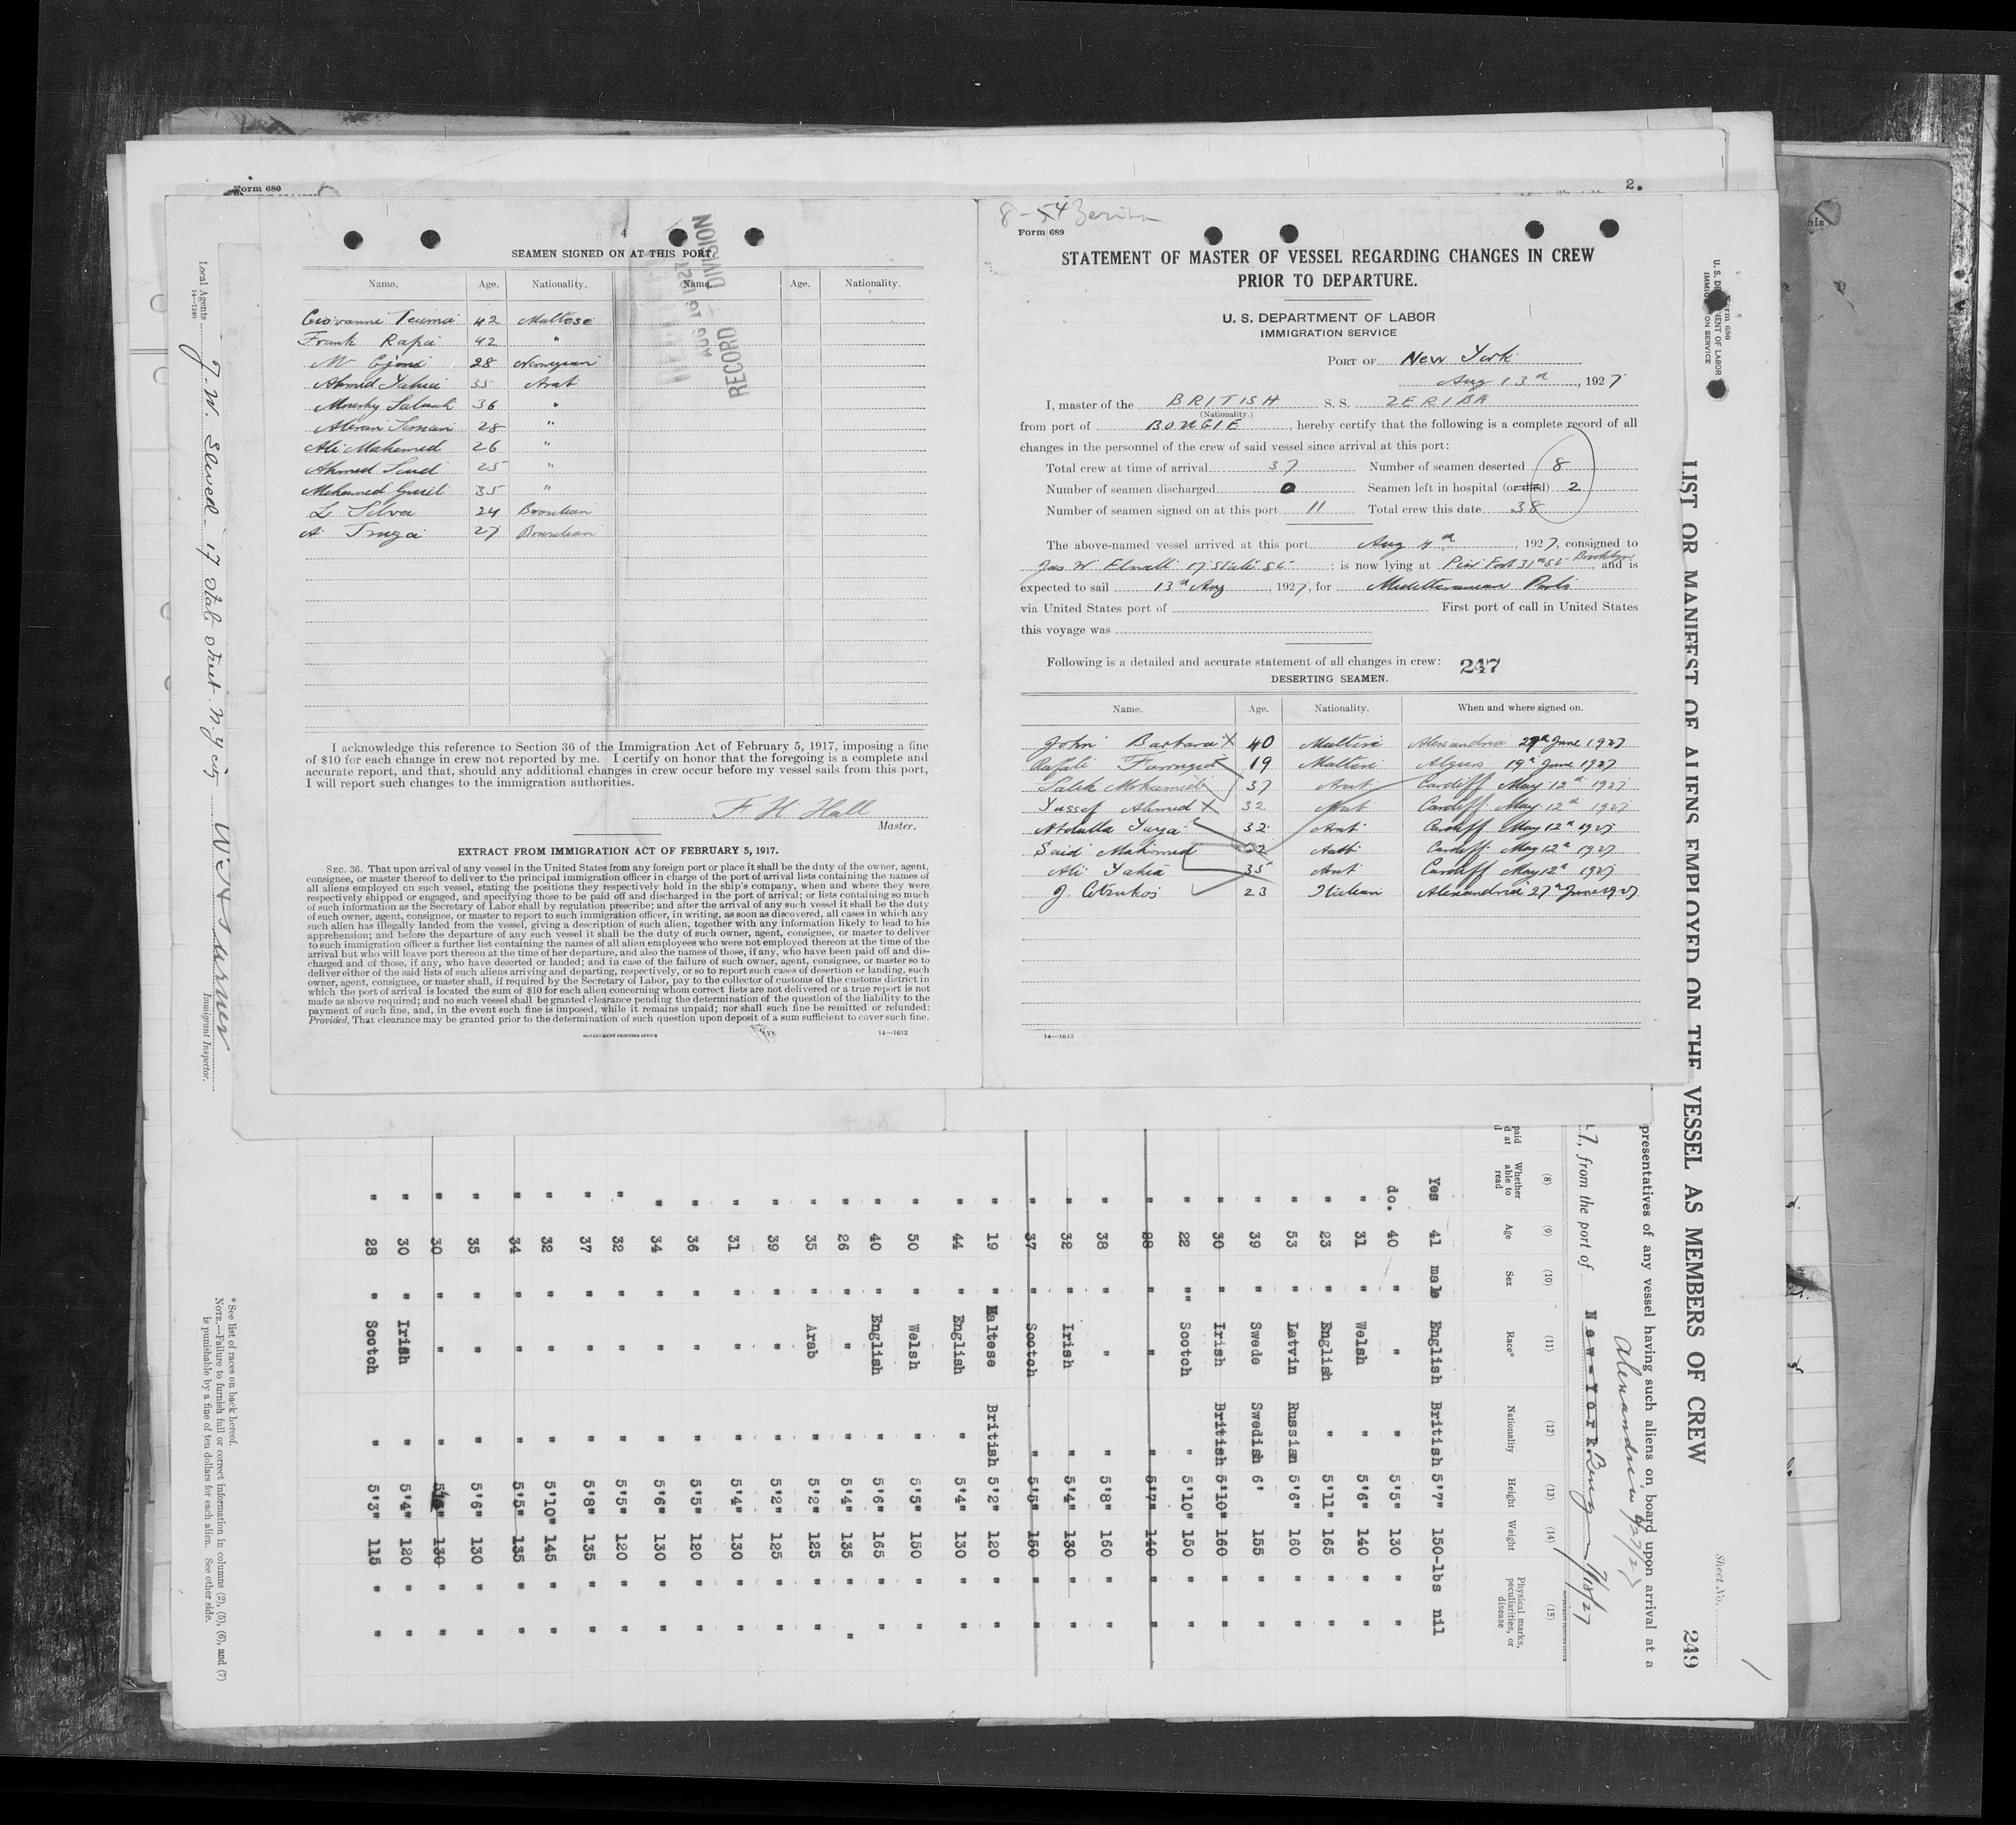 Form 680
2.
4
SEAMEN SIGNED ON AT THIS PORT.
Name. Age. Nationality. Name. Age. Nationality.
Giovanni Teuma 42 Maltese
Frank Rapa 42 "
M 28 Norwegian
Ahmed Yahia 35 Arab
36 "
28 "
Ali Mahomed 26 "
Ahmed Said 25 "
Mohamed 35 "
L. Silva 24 Brazilian
A. 27 Brazilian
RECORD DIVISION
I acknowledge this reference to Section 36 of the Immigration Act of February 5, 1917, imposing a fine
of $10 for each change in crew not reported by me. I certify on honor that the foregoing is a complete and
accurate report, and that, should any additional changes in crew occur before my vessel sails from this port,
I will report such changes to the immigration authorities.
F H Hall
Master.
EXTRACT FROM IMMIGRATION ACT OF FEBRUARY 5, 1917.
SEC. 36. That upon arrival of any vessel in the United States from any foreign port or place it shall be the duty of the owner, agent,
consignee, or master thereof to deliver to the principal immigration officer in charge of the port of arrival lists containing the names of
all aliens employed on such vessel, stating the positions they respectively hold in the ship's company, when and where they were
respectively shipped or engaged, and specifying those to be paid off and discharged in the port of arrival; or lists containing so much
of such information as the Secretary of Labor shall by regulation prescribe; and after the arrival of any such vessel it shall be the duty
of such owner, agent, consignee, or master to report to such immigration officer, in writing, as soon as discovered, all cases in which any
such alien has illegally landed from the vessel, giving a description of such alien, together with any information likely to lead to his
apprehension; and before the departure of any such vessel it shall be the duty of such owner, agent, consignee, or master to deliver
to such immigration officer a further list containing the names of all alien employees who were not employed thereon at the time of the
arrival but who will leave port thereon at the time of her departure, and also the names of those, if any, who have been paid off and dis-
charged and of those, if any, who have deserted or landed; and in case of the failure of such owner, agent, consignee, or master so to
deliver either of the said lists of such aliens arriving and departing, respectively, or so to report such cases of desertion or landing, such
owner, agent, consignee, or master shall, if required by the Secretary of Labor, pay to the collector of customs of the customs district in
which the port of arrival is located the sum of $10 for each alien concerning whom correct lists are not delivered or a true report is not
made as above required; and no such vessel shall be granted clearance pending the determination of the question of the liability to the
payment of such fine, and, in the event such fine is imposed, while it remains unpaid; nor shall such fine be remitted or refunded:
Provided, That clearance may be granted prior to the determination of such question upon deposit of a sum sufficient to cover such fine.
GOVERNMENT PRINTING OFFICE
14—1613
8-54 Zeriba
Form 689
STATEMENT OF MASTER OF VESSEL REGARDING CHANGES IN CREW
PRIOR TO DEPARTURE.
U. S. DEPARTMENT OF LABOR
IMMIGRATION SERVICE
PORT OF New York
Aug 13th, 1927
I, master of the BRITISH S. S. ZERIBA
(Nationality.)
from port of BOUGIE, hereby certify that the following is a complete record of all
changes in the personnel of the crew of said vessel since arrival at this port:
Total crew at time of arrival 37 Number of seamen deserted 8
Number of seamen discharged 0 Seamen left in hospital (or died) 2
Number of seamen signed on at this port 11 Total crew this date 38
The above-named vessel arrived at this port Aug 4th, 1927, consigned to
Jas W Elwell 17 State St ; is now lying at Pier Foot 31st St Brooklyn, and is
expected to sail 13th Aug, 1927, for Mediterranean Ports
via United States port of First port of call in United States
this voyage was
Following is a detailed and accurate statement of all changes in crew: 247
DESERTING SEAMEN.
Name. Age. Nationality. When and where signed on.
John Barbara X 40 Maltese Alexandria 27th June 1927
19 Maltese Algiers 19th June 1927
Saleh Mohamed 37 Arab Cardiff May 12th 1927
Yussef Ahmed X 32 Arab Cardiff May 12th 1927
Abdulla 32 Arab Cardiff May 12th 1927
Said Mahomed 32 Arab Cardiff May 12th 1927
Ali Yahia 35 Arab Cardiff May 12th 1927
J. 23 Italian Alexandria 27th June 1927
14—1613
Local Agents J. W. Elwell - 17 State Street. N. Y. City
14—1240
W H Turner
Immigrant Inspector.
U. S. DEPARTMENT OF LABOR
IMMIGRATION SERVICE
Form 680
LIST OR MANIFEST OF ALIENS EMPLOYED ON THE VESSEL AS MEMBERS OF CREW
Sheet No.
249
presentatives of any vessel having such aliens on board upon arrival at a
Alexandria
7, from the port of New-York 7/15/27
(8) (9) (10) (11) (12) (13) (14) (15)
Whether able to read Age Sex Race* Nationality Height Weight Physical marks, peculiarities, or disease
Yes 41 male English British 5'7" 150-lbs nil
do. 40 " " " 5'5" 130 " "
" 31 " Welsh " 5'6" 140 " "
" 23 " English " 5'11" 165 " "
" 53 " Latvin Russian 5'6" 160 " "
" 39 " Swede Swedish 6' 155 " "
" 30 " Irish British 5'10" 160 " "
" 22 "" Scotch " 5'10" 150 " "
" 28 " " " 5'7" 140 " "
" 38 " " " 5'8" 160 " "
" 32 " Irish " 5'4" 130 " "
" 37 " Scotch " 5'5" 150 " "
" 19 " Maltese British 5'2" 120 " "
" 44 " English " 5'4" 130 " "
" 50 " Welsh " 5'5" 150 " "
" 40 " English " 5'6" 165 " "
" 26 " " " 5'4" 135 " "
" 35 " Arab " 5'2" 125 " "
" 39 " " " 5'2" 125 " "
" 31 " " " 5'4" 130 " "
" 36 " " " 5'5" 120 " "
" 34 " " " 5'6" 130 " "
" 32 " " " 5'5" 120 " "
" 37 " " " 5'8" 135 " "
" 32 " " " 5'10" 145 " "
" 34 " " " 5'5" 135 " "
" 35 " " " 5'6" 130 " "
" 30 " " " 130 " "
" 30 " Irish " 5'4" 120 " "
" 28 " Scotch " 5'3" 115 " "
* See list of races on back hereof.
NOTE.—Failure to furnish full or correct information in columns (2), (5), (6), and (7)
is punishable by a fine of ten dollars for each alien. See other side.